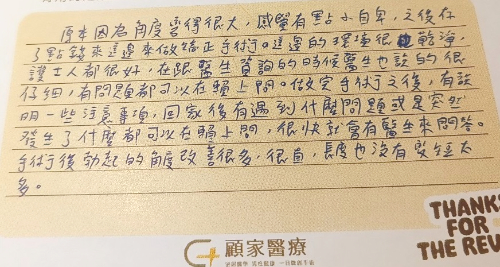 原本因為角度彎得很大,感覺有點小自卑,之後存
了點錢來這邊來做矯正手術。這邊的環境很乾淨,
護士人都很好,在跟醫生資詢的時候醫生也說的很
仔細,有問題都可以在賴上問。做完手術之後,有說
明一些注意事項,回家後有遇到什麼問題或是突然
發生了什麼都可以在賴上問,很快就會有醫生來問答。
手術後勃起的角度改善很多,很直,長度也沒有變短太
多。
THANKS
FOR
THE REV
顧家醫療